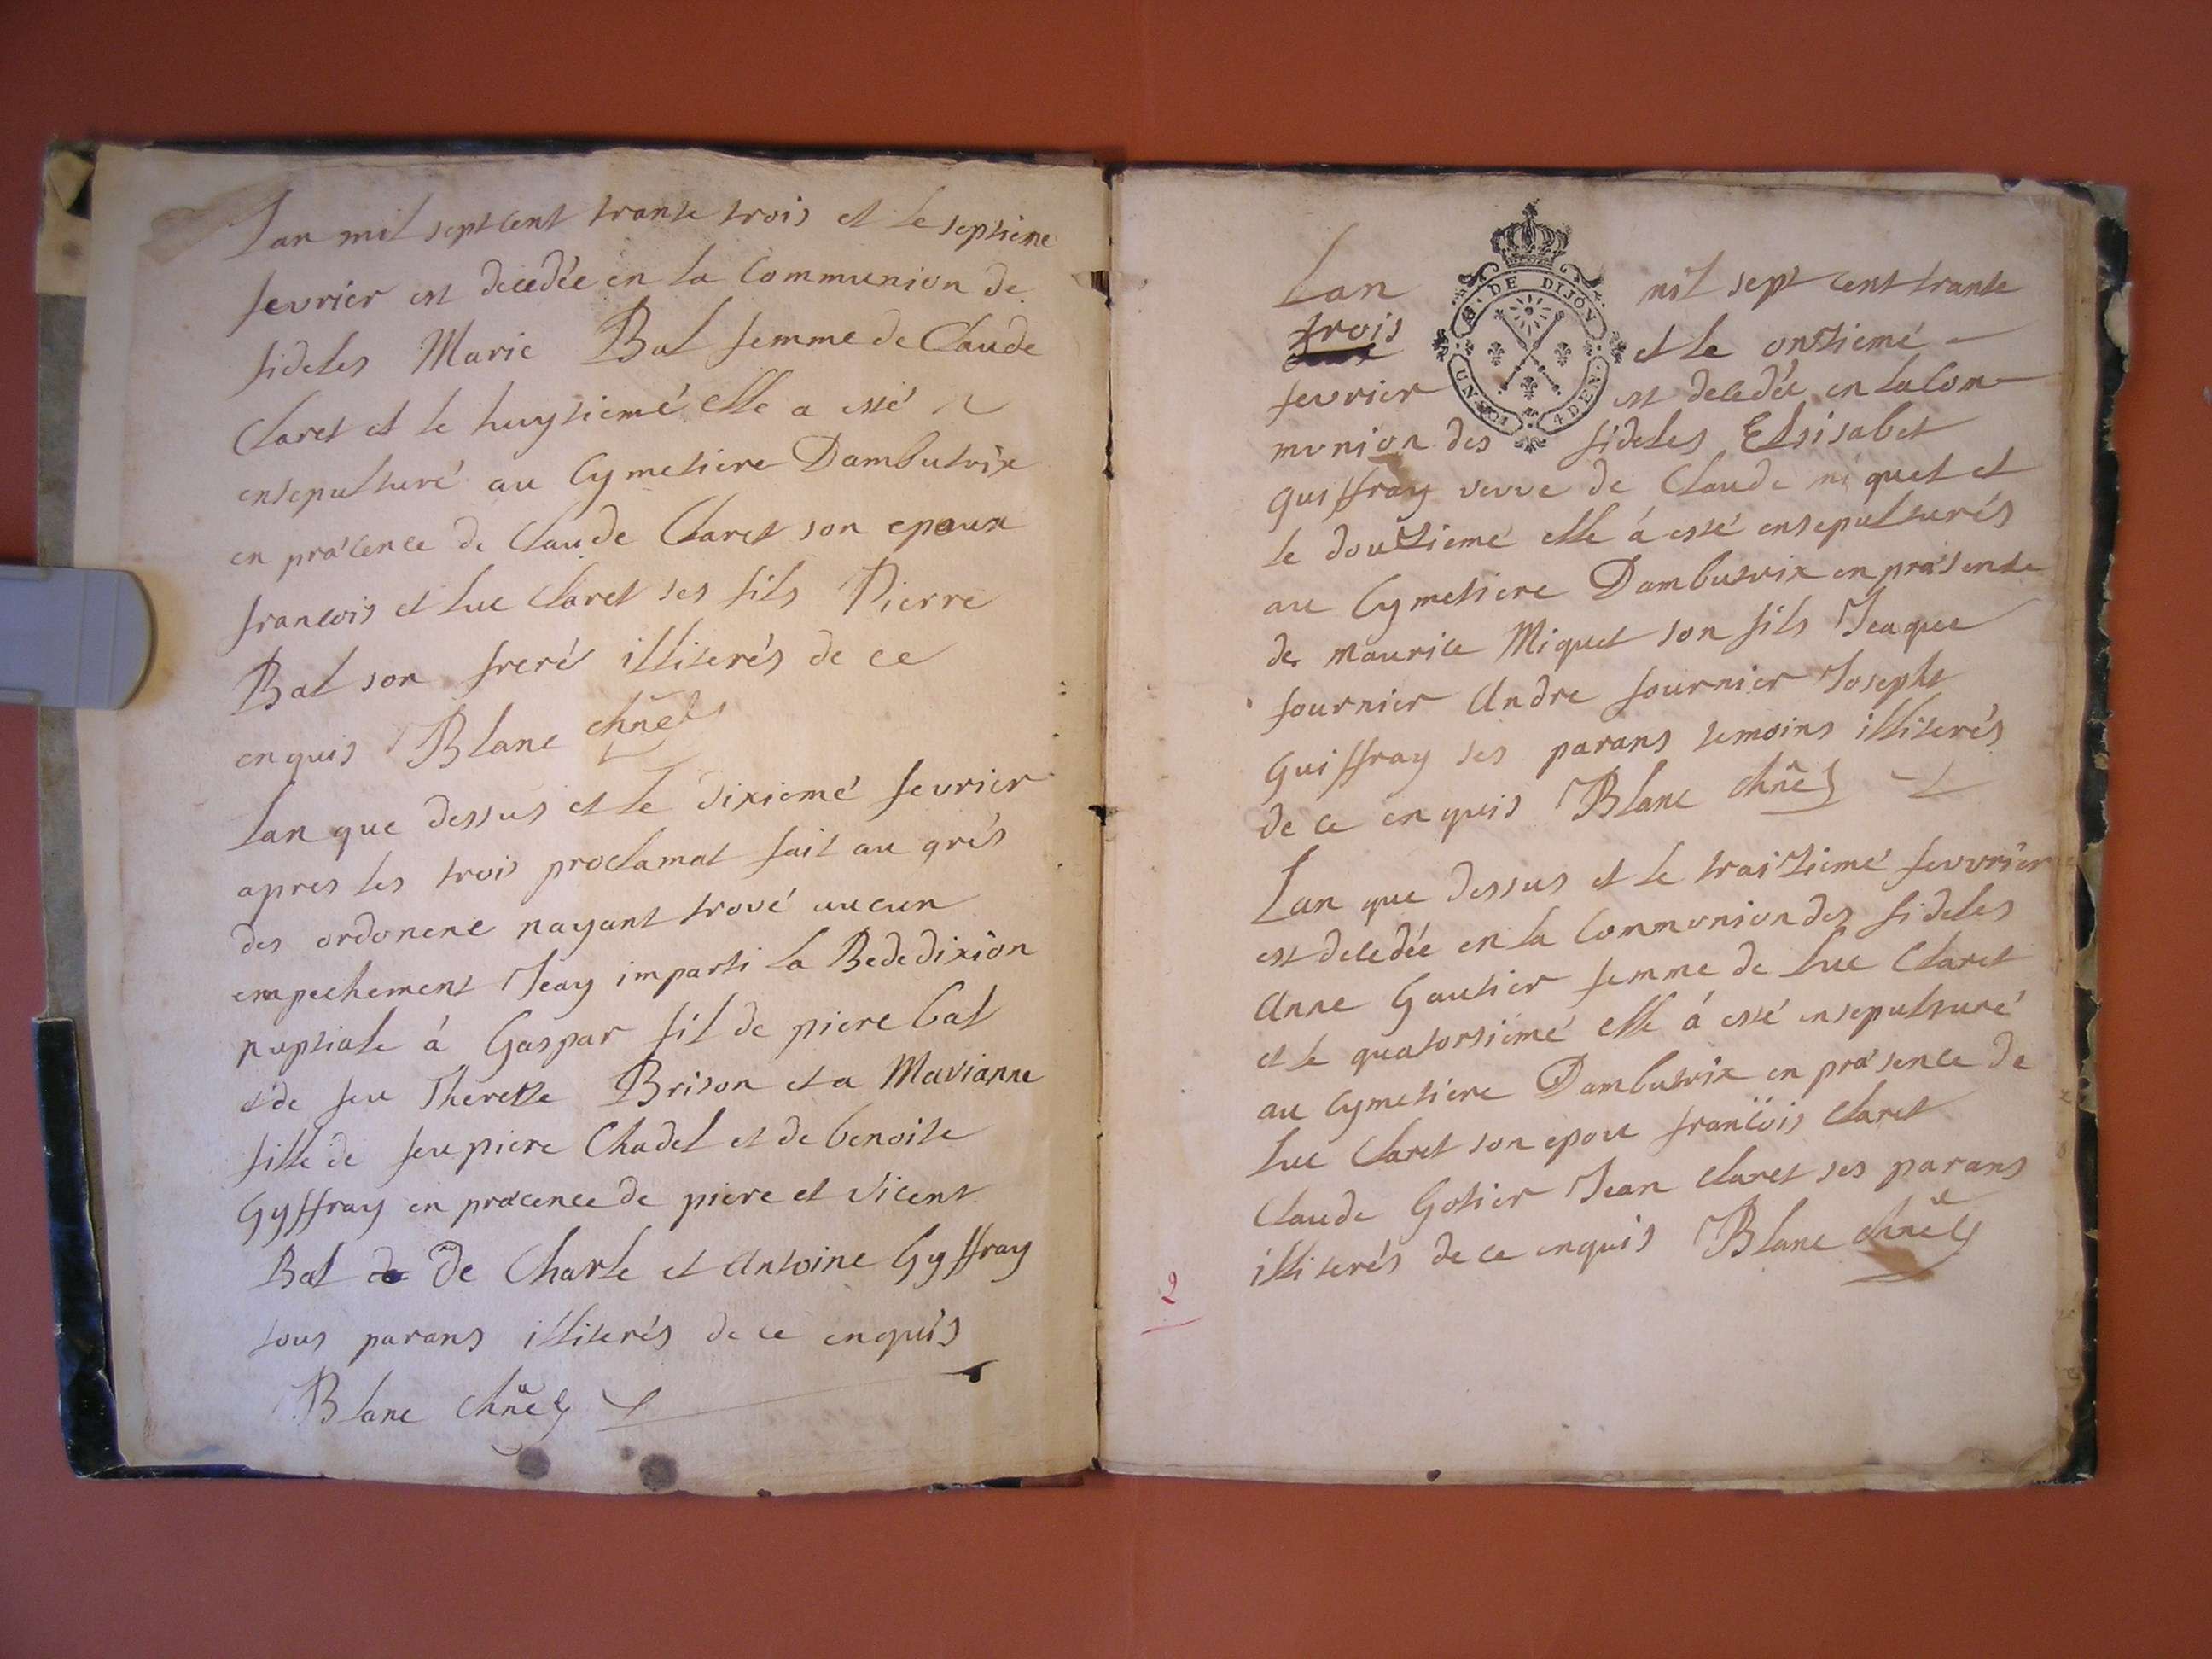 Lan mil sept cent trante trois et le septieme
fevrier est decedée en la Communion de
fideles Marie Bal femme de Claude
Claret et le huytiemé elle a esté
ensepulturé au Cymetiere Dambutrix
en præcence de Claude Claret son epoux
francois et luc Claret ses fils Pierre
Bal son freré illiterés de ce
enquis Blanc chñe
lan que dessus et le dixiemé fevrier
apres les trois proclamat fait au grés
des ordonene nayant trové aucun
empechement Jeay imparti la Bededixion
nuptiale á Gaspar fil de piere bal
et de feu Therese Brison et a Marianne
fille de feu piere Chadel et de benoite
Gyffray en præcence de piere et vicent
Bal de de Charle et Antoine Gyffray
tous parans illiterés de ce enquis
Blanc chñe
G. DE DIJON
UN SOL 4 DEN.
Lan mil sept cent trante
trois et le onziemé
fevrier est decedée en la Com
munion des fideles Elsisabet
guiffray veuve de Claude miquet et
le douziemé elle á esté ensepulturés
au Cymetiere Dambutrix en præsence
de maurice Miquet son fils Jeaque
fournier Andre fournier Joseph
Guiffray ses parans temoins illiterés
de ce enquis Blanc chñe
Lan que dessus et le traiziemé fevvrier
est decedée en la Communion des fideles
Anne Gautier femme de luc Claret
et le quatorsiemé elle á esté ensepulturé
au Cymetiere Dambutrix en præsence de
luc Claret son epou francois Claret
Claude Gotier Jean Claret ses parans
illiterés de ce enquis Blanc chñe
2